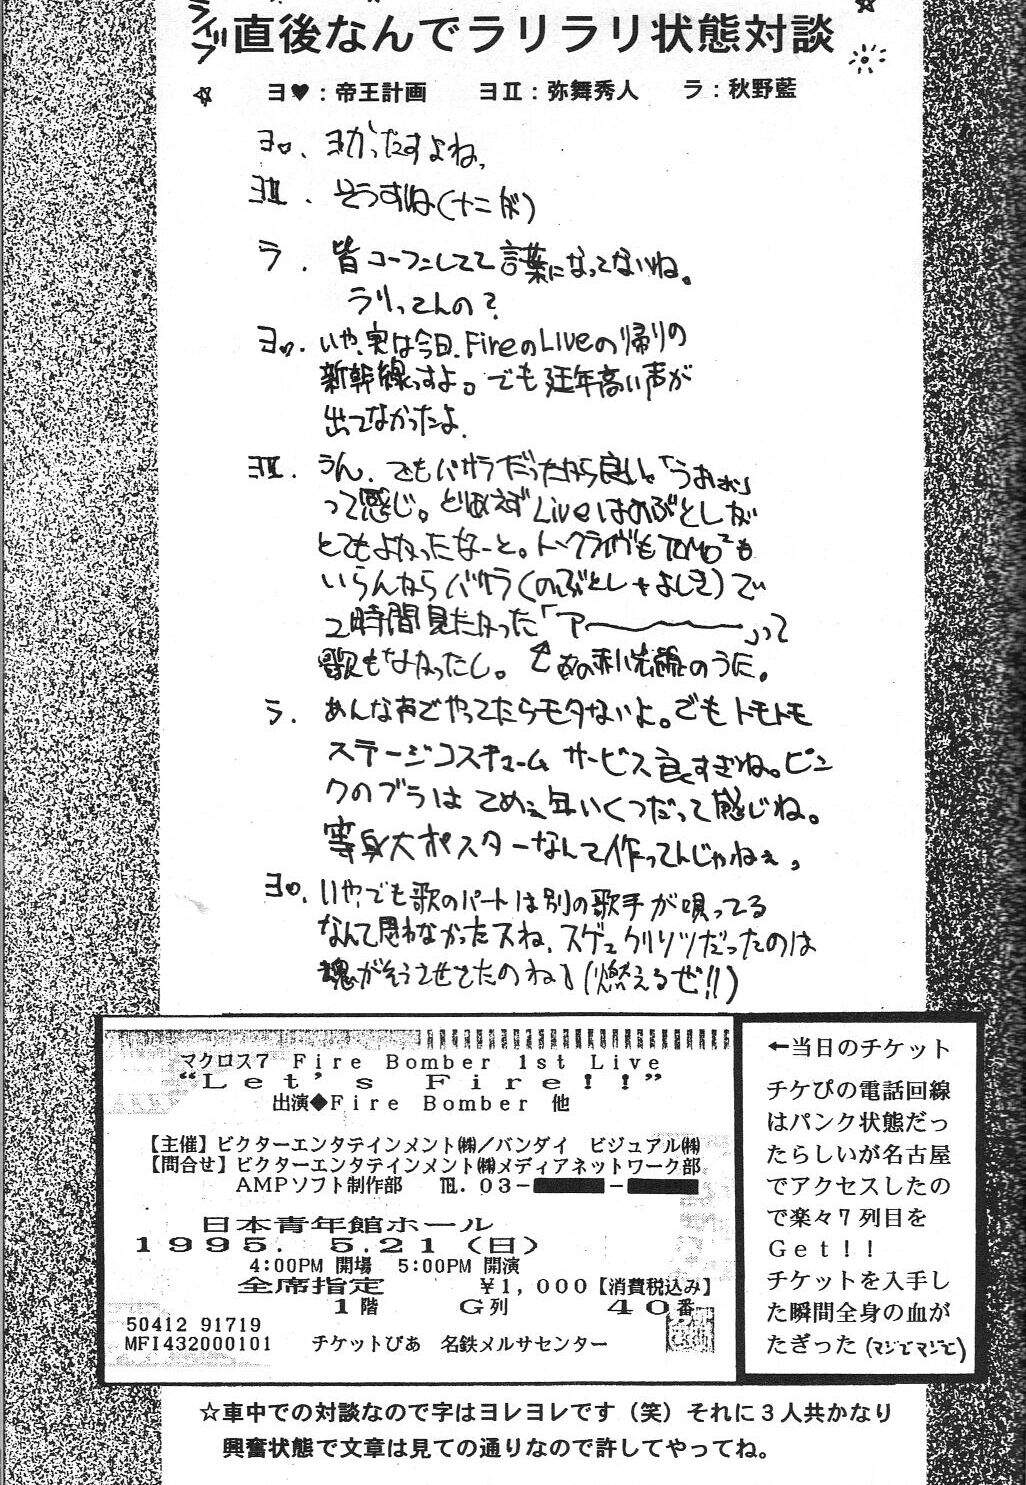 ライブ直後なんでラリラリ状態対談
ヨ♥：帝王計画　ヨⅡ：弥舞秀人　ラ：秋野藍
ヨ♥．ヨかったすよね、
ヨⅡ．そうすね（ナニが）
ラ．皆コーフンしてて言葉になってないね。
ラリってんの？
ヨ♥．いや、実は今日、FireのLiveの帰りの
新幹線っすよ。でも延年高い声が
出てなかったよ．
ヨⅡ．うん．でもバサラだったから良い。「うおぉ」
って感じ。とりあえずLiveはのぶとしが
とてもよかったなーと。トークライヴもTOMO²も
いらんからバサラ（のぶとし＋よしき）で
2時間見たかった「アーーーーー」って
歌もなかったし。↑あの利光節のうた。
ラ．あんな声でやってたらモタないよ。でもトモトモ
ステージコスチューム サービス良すぎね。ピン
クのブラはてめェ年いくつだって感じね。
等身大ポスターなんて作ってんじゃねぇ。
ヨ♥．いや、でも歌のパートは別の歌手が唄ってる
なんて思わなかったスね．スゲェクリソツだったのは
魂がそうさせてたのね」（燃えるぜ!!）
マクロス7　Fire Bomber 1st Live
“Let's Fire!!”
出演◆Fire Bomber 他
【主催】ビクターエンタテインメント㈱／バンダイ　ビジュアル㈱
【問合せ】ビクターエンタテインメント㈱メディアネットワーク部
AMPソフト制作部　℡．03－　－
日本青年館ホール
1995．5．21（日）
4:00PM 開場　5:00PM 開演
全席指定　￥1，000【消費税込み】
1階　G列　40番
50412 91719
MFI432000101　チケットぴあ　名鉄メルサセンター
←当日のチケット
チケぴの電話回線
はパンク状態だっ
たらしいが名古屋
でアクセスしたの
で楽々7列目を
Get！！
チケットを入手し
た瞬間全身の血が
たぎった（マジでマジで）
☆車中での対談なので字はヨレヨレです（笑）それに3人共かなり
興奮状態で文章は見ての通りなので許してやってね。